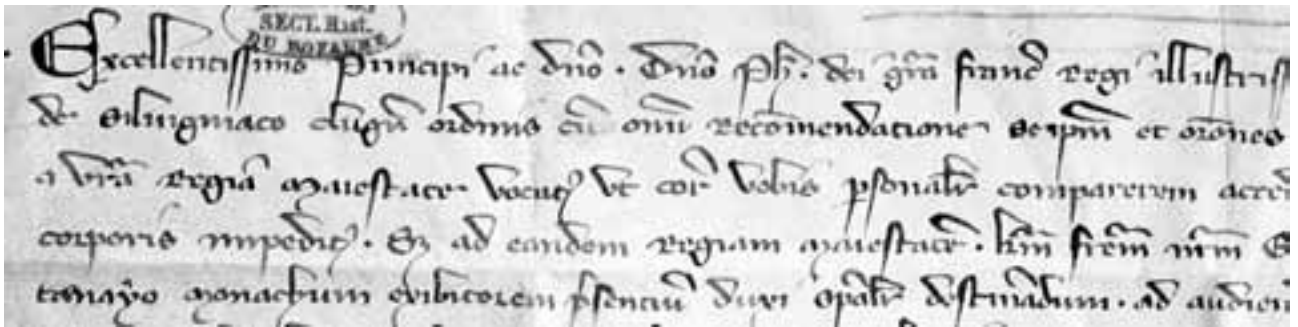 SECT. Hist.
DU ROYAUME
Excellentissimo Principi ac dño . Dño Ph̃ . dei gr̃a franc̃ regi illustriss
de Silviigniaco clug̃ ordinis cũ omĩ recõmendatione seip̃m et or̃ones
a vr̃a regia maiestate vocat9 vt cor̃ vobis p̱sonalr̃ comparerem acced
corporis impedit9 . S3 ad eandem regiam maiestatẽ . kr̃m fr̃em nr̃m
monachum exibitorem p̃senciũ duxi sp̃alr̃ destinãdum . ad audien